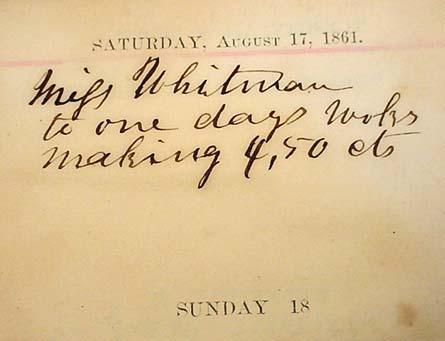 SATURDAY, AUGUST 17, 1861.
Miss Whitman
to one days woks
making 4,50 cts
SUNDAY 18